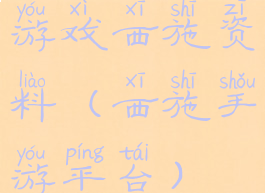 yóu xì xī shī zī
游戏西施资
liào xī shī shǒu
料（西施手
yóu píng tái
游平台）